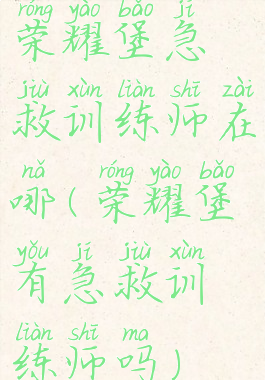 róng yào bǎo jí
荣耀堡急
jiù xùn liàn shī zài
救训练师在
nǎ róng yào bǎo
哪(荣耀堡
yǒu jí jiù xùn
有急救训
liàn shī ma
练师吗)